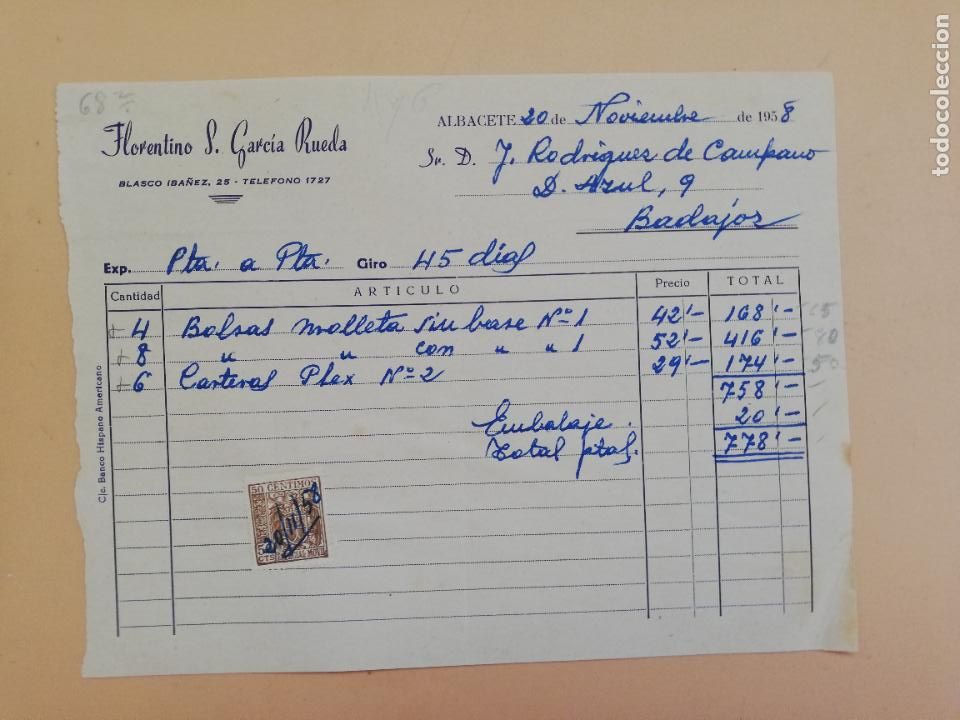 68
Florentino S. García Rueda
BLASCO IBAÑEZ, 25 - TELEFONO 1727
ALBACETE 20 de Noviembre de 1958
Sr. D. J. Rodriguez de Campano
D. Azul, 9
Badajoz
Exp. Pta. a Pta. Giro 45 días
Cantidad ARTICULO Precio TOTAL
4 Bolsas molleta sin base Nº 1 42'- 168'-
8 " " con " " 1 52'- 416'-
6 Carteras Plex Nº 2 29'- 174'-
758'-
Embalaje. 20'-
Total ptas. 778'-
50 CENTIMOS
20/11/58
C/c. Banco Hispano Americano
todocoleccion